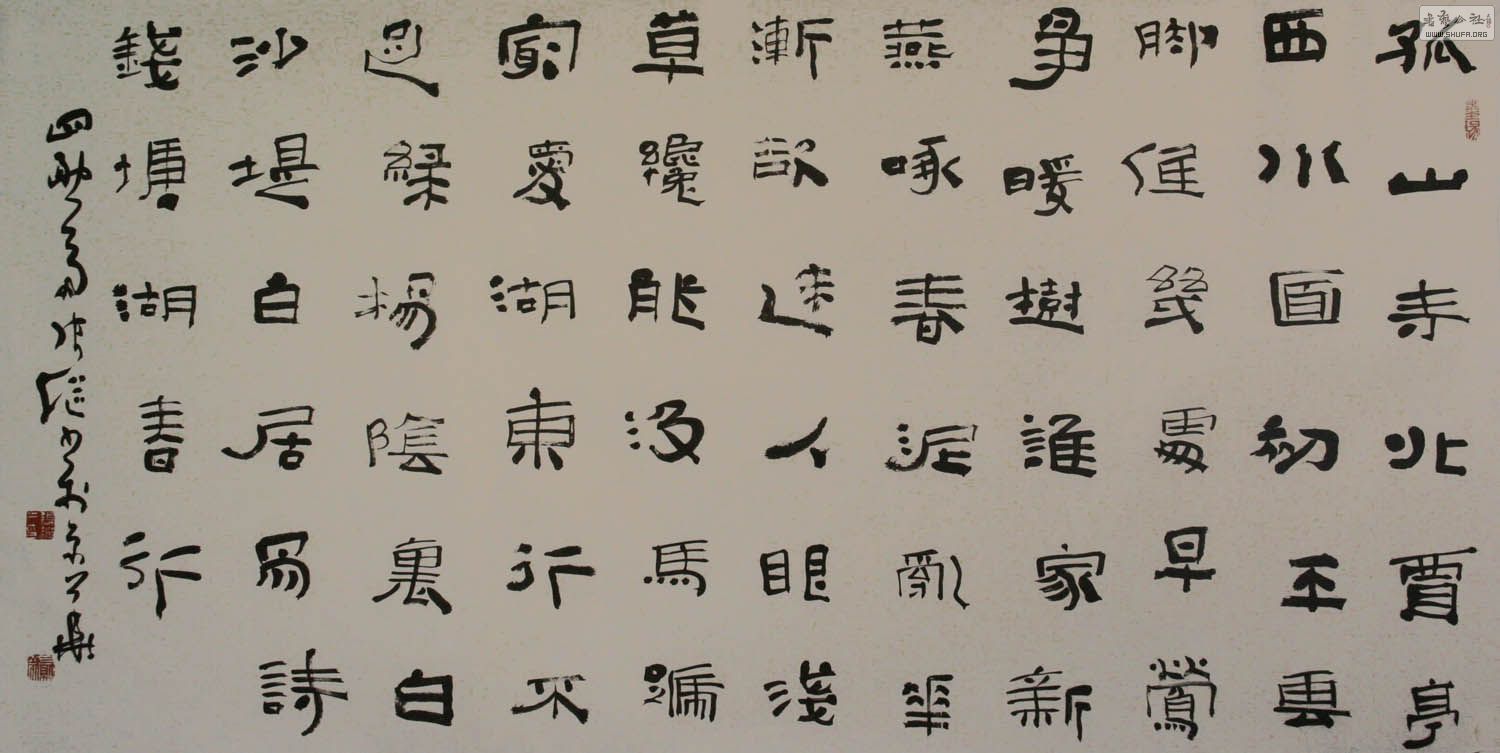 孤山寺北賈亭
西水面初平雲
脚低幾處早鶯
爭暖樹誰家新
燕啄春泥亂華
漸欲迷人眼淺
草纔能没馬蹏
最愛湖東行不
足緑楊陰裏白
沙堤白居易詩
錢塘湖春行
張继书於京華
書藝公社
WWW.SHUFA.ORG